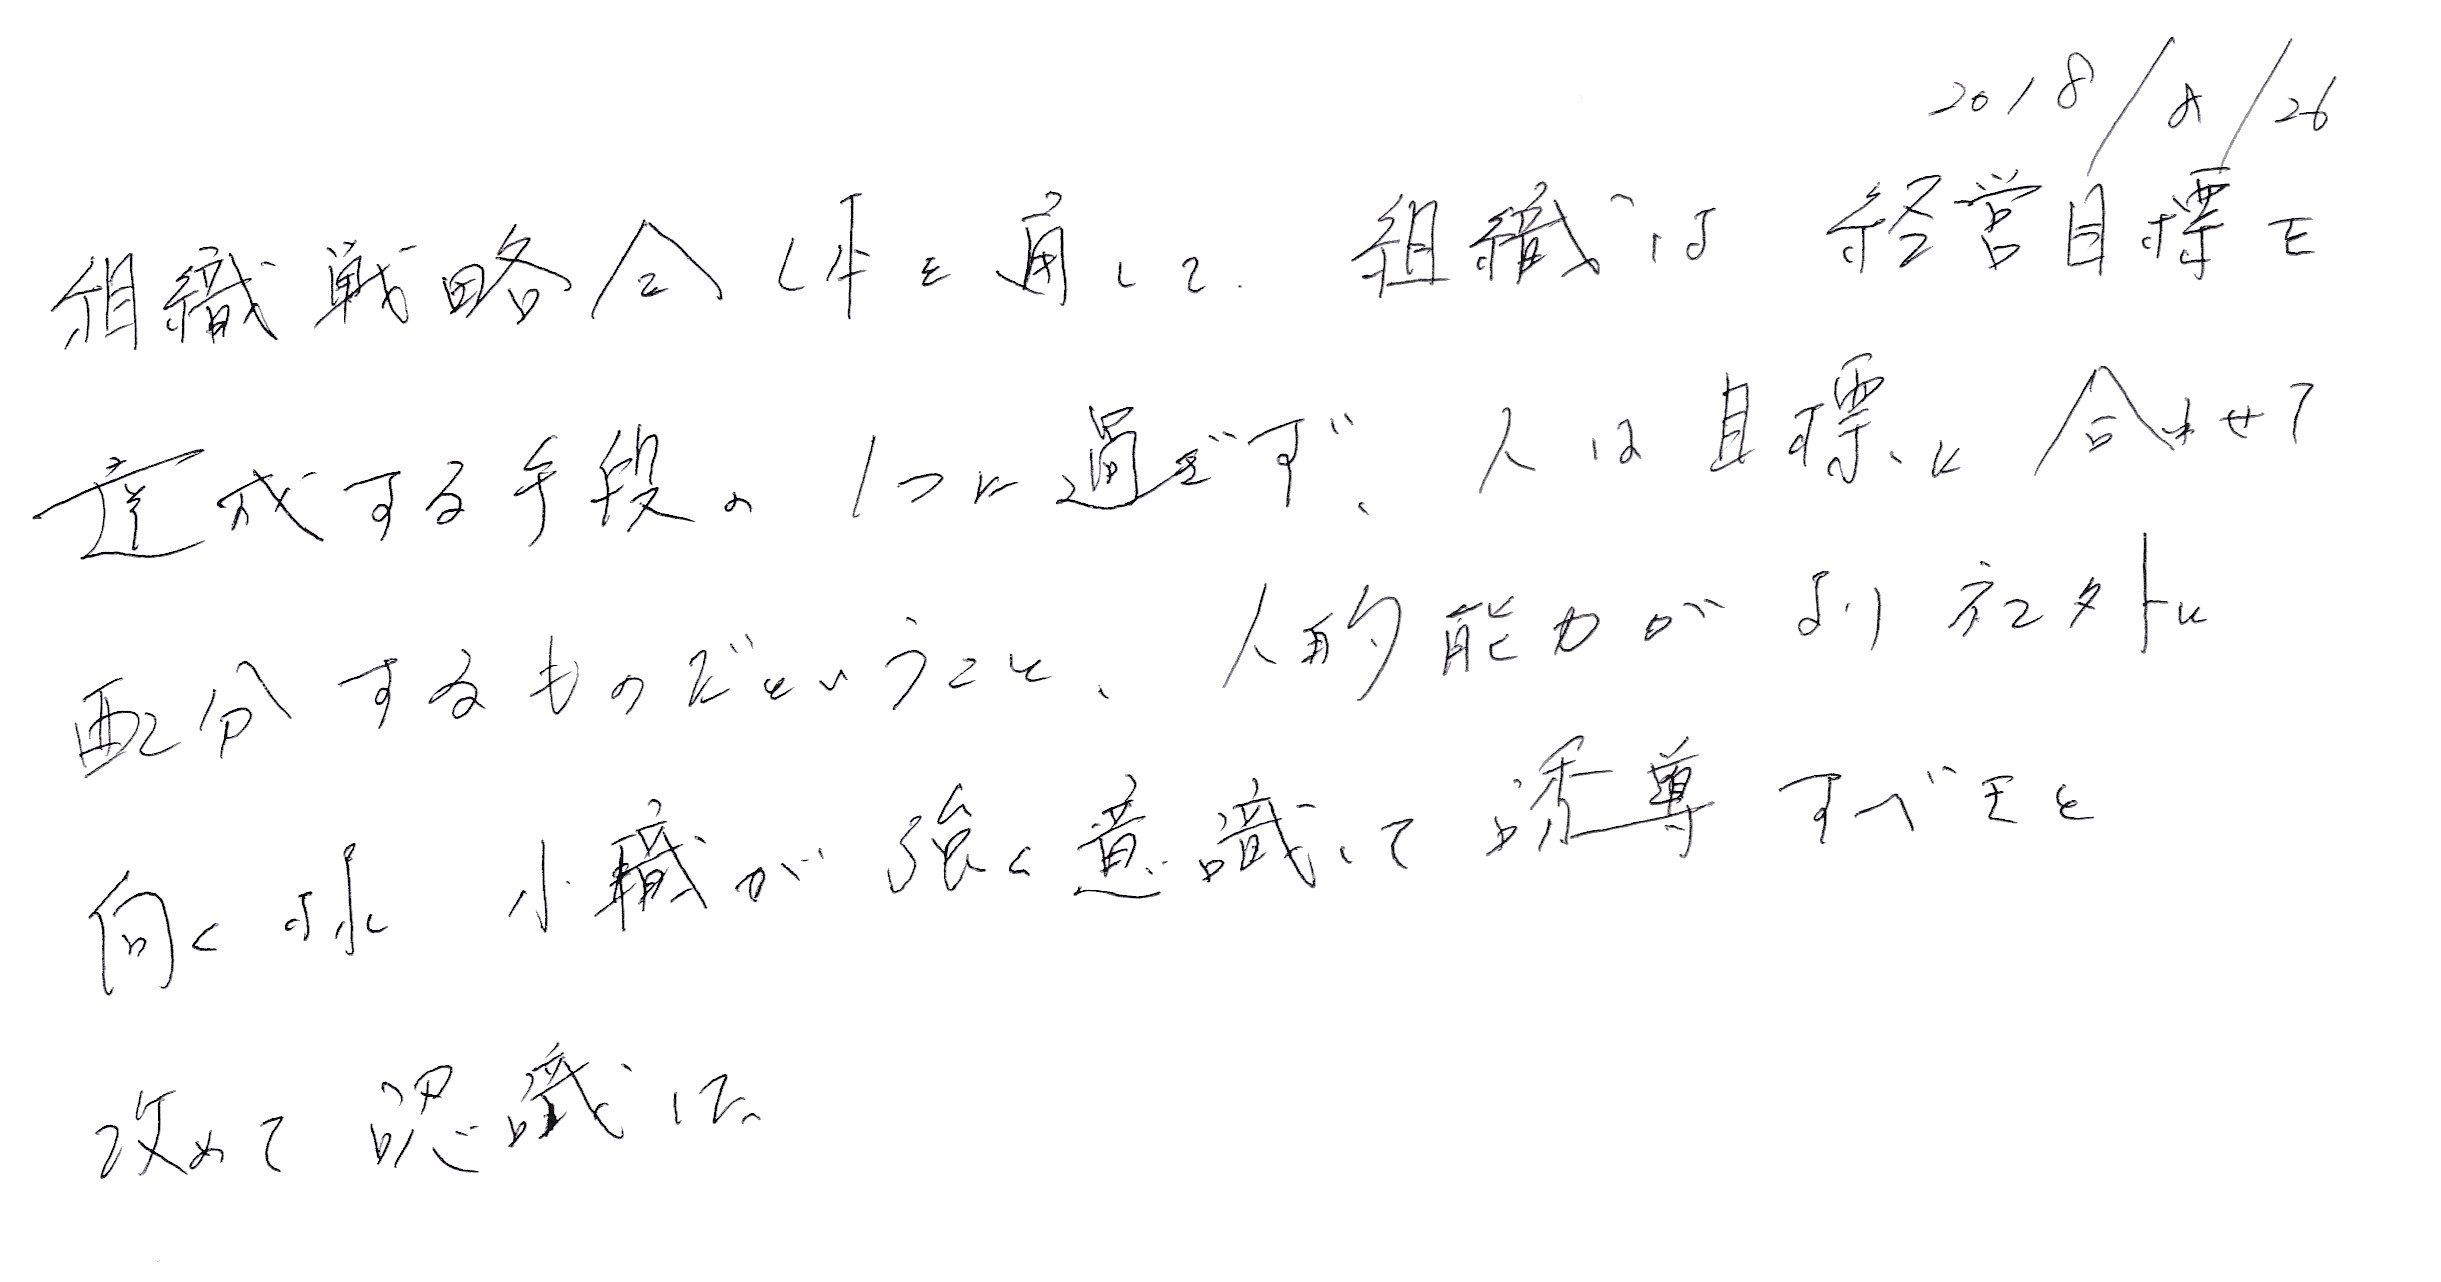 2018/8/26
組織戦略全体を通して、組織は経営目標を
達成する手段の1つに過ぎず、人は目標に合わせて
配分するものだということ、人的能力がより社外に
向く様 小職が強く意識して誘導すべきと
改めて認識した。